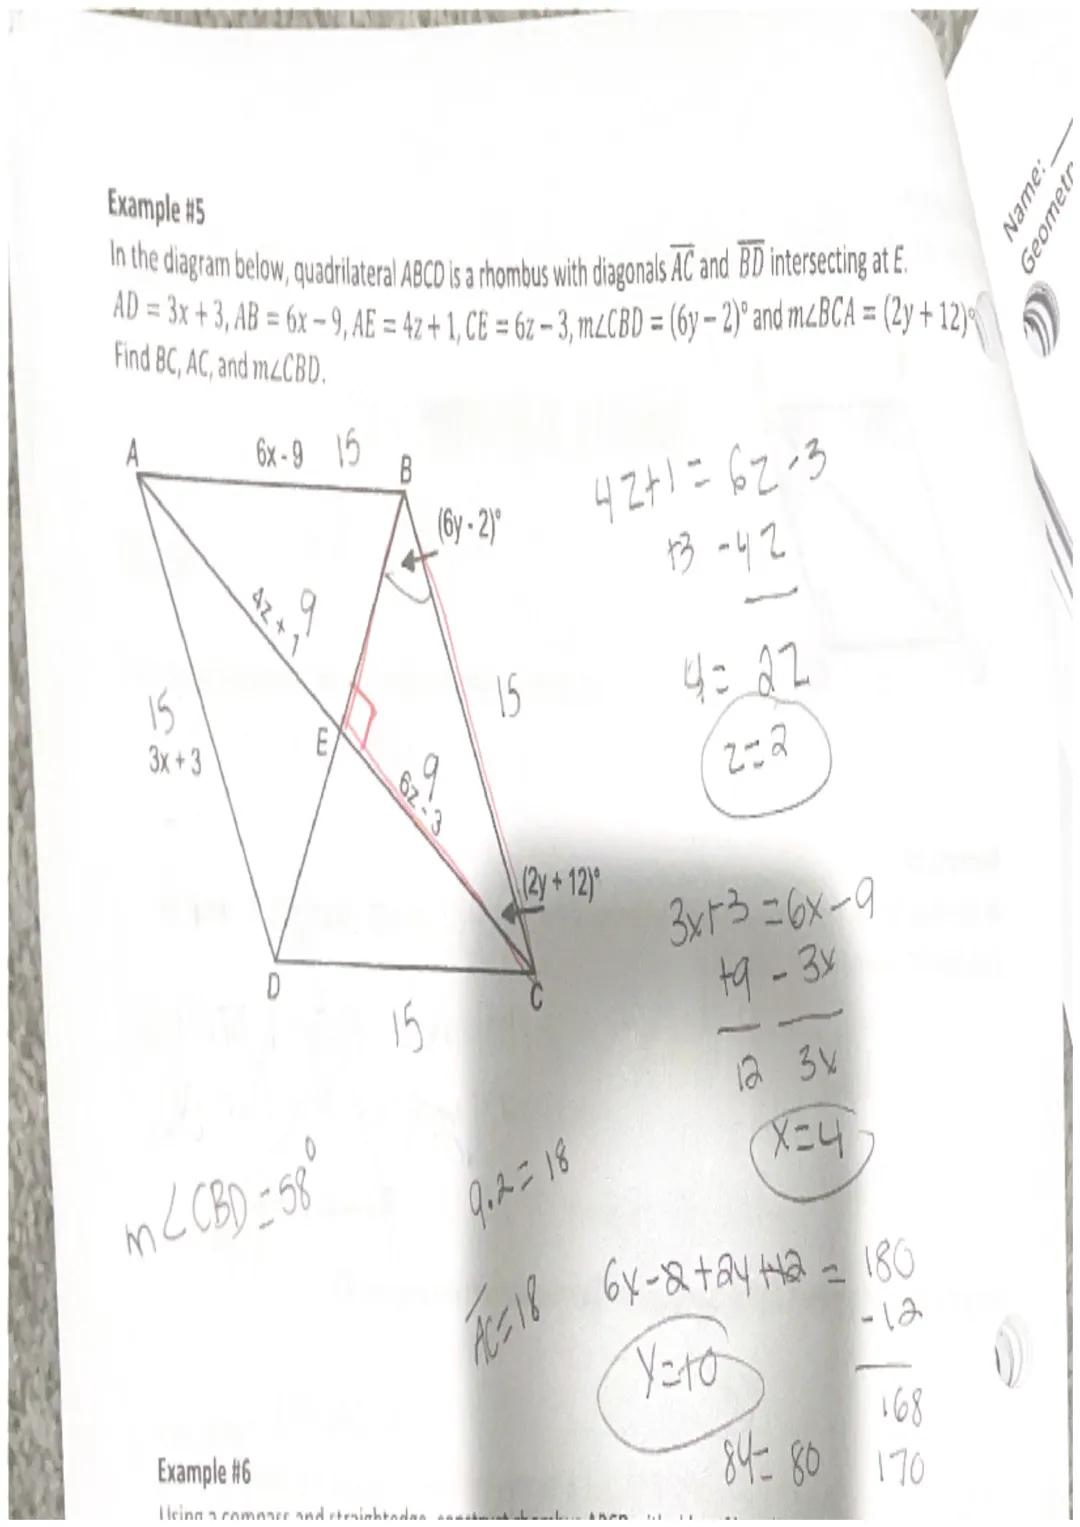 Name:
Geometr
Example #5
In the diagram below, quadrilateral ABCD is a rhombus with diagonals AC and BD intersecting at E.
AD = 3x + 3, AB = 6x – 9, AE = 4z + 1, CE = 6z – 3, m∠CBD = (6y – 2)° and m∠BCA = (2y + 12)°
Find BC, AC, and m∠CBD.
A
6x - 9 15
B
(6y - 2)°
4z + 1 9
15
3x + 3
E
15
6z - 3 9
(2y + 12)°
D
C
15
4z+1 = 6z-3
+3 -4z
4 = 2z
z=2
3x+3 = 6x-9
+9 - 3x
12 3x
x=4
m∠CBD = 58°
9.2 = 18
AC=18
6y-2+2y+12 = 180
-12
y=10
168
8y= 80 170
Example #6